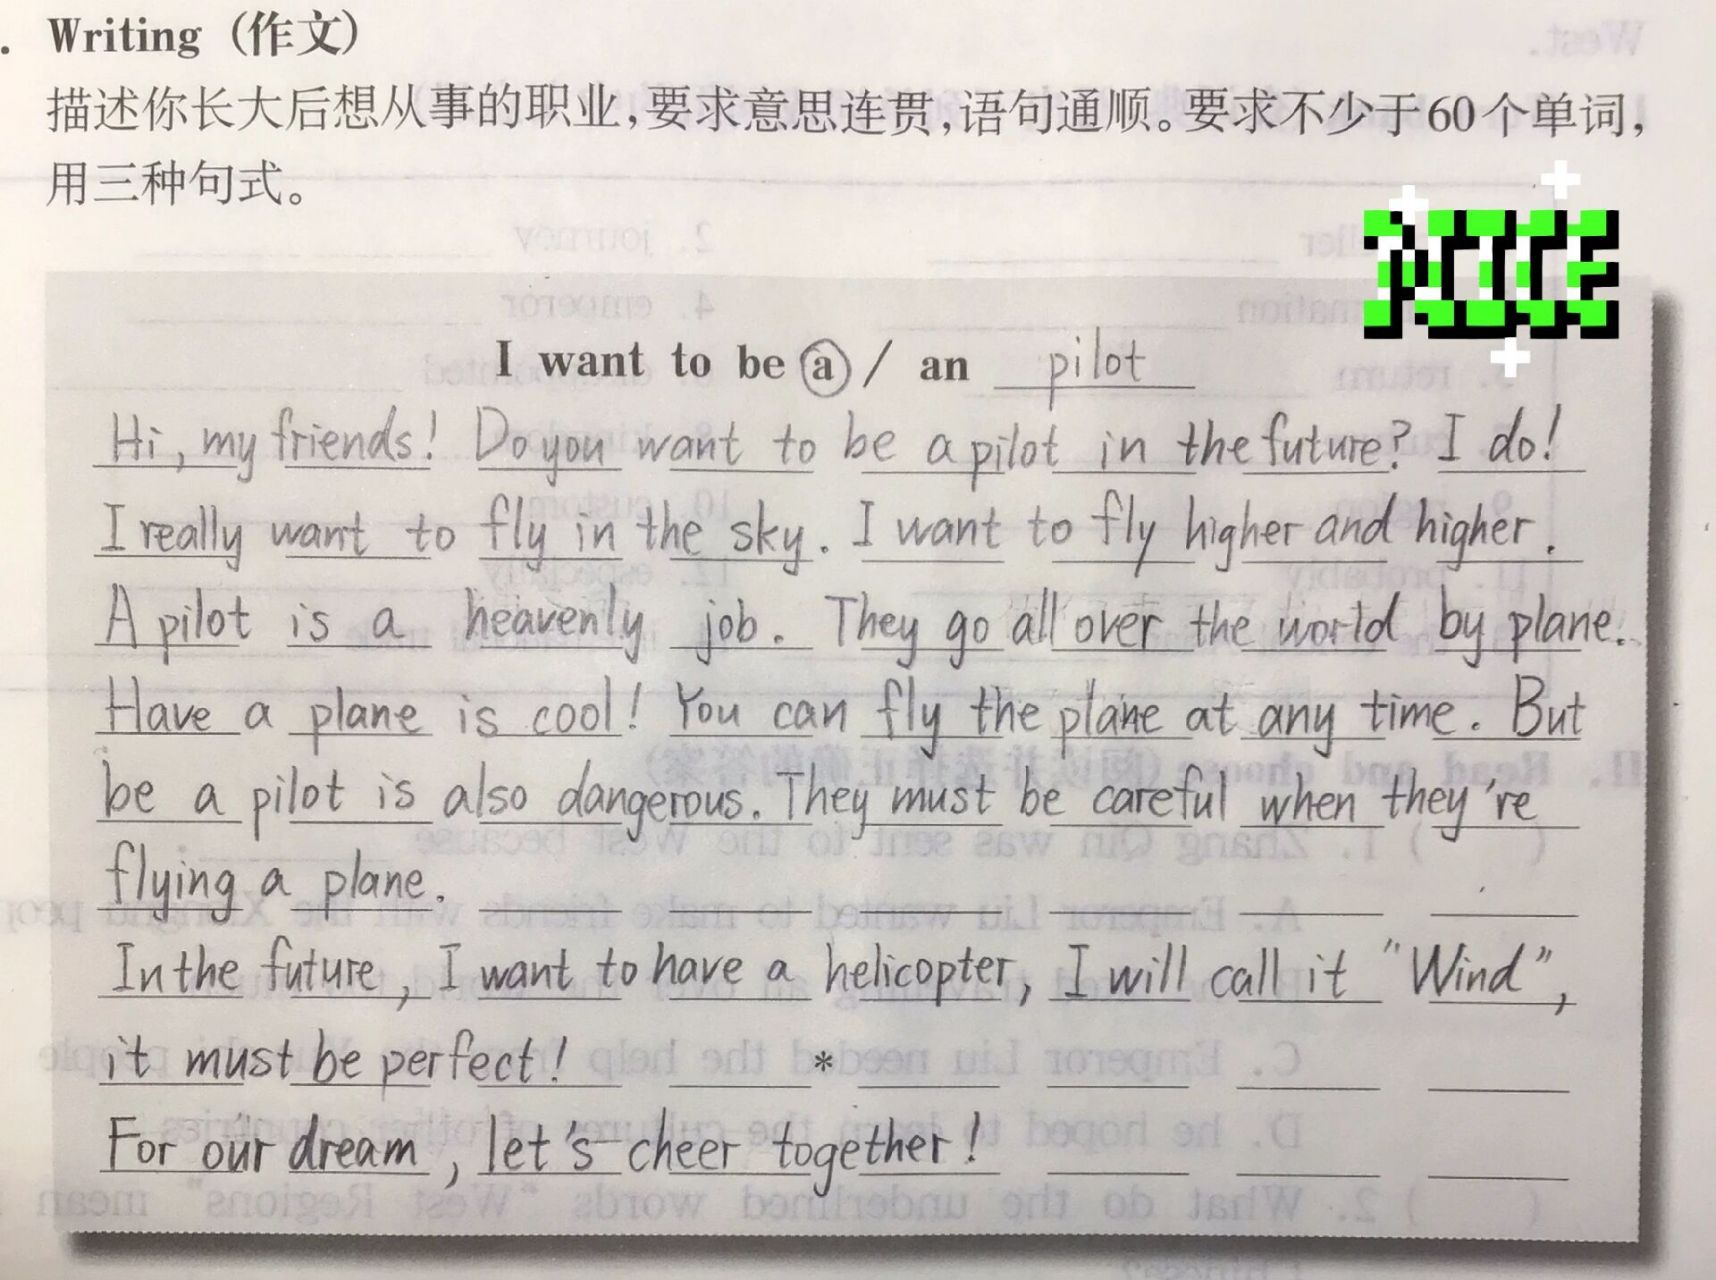 . Writing (作文)
描述你长大后想从事的职业,要求意思连贯,语句通顺。要求不少于60个单词,
用三种句式。
I want to be a / an pilot
Hi, my friends! Do you want to be a pilot in the future? I do!
I really want to fly in the sky. I want to fly higher and higher.
A pilot is a heavenly job. They go all over the world by plane.
Have a plane is cool! You can fly the plane at any time. But
be a pilot is also dangerous. They must be careful when they're
flying a plane.
In the future, I want to have a helicopter, I will call it "Wind",
it must be perfect! *
For our dream, let's cheer together!